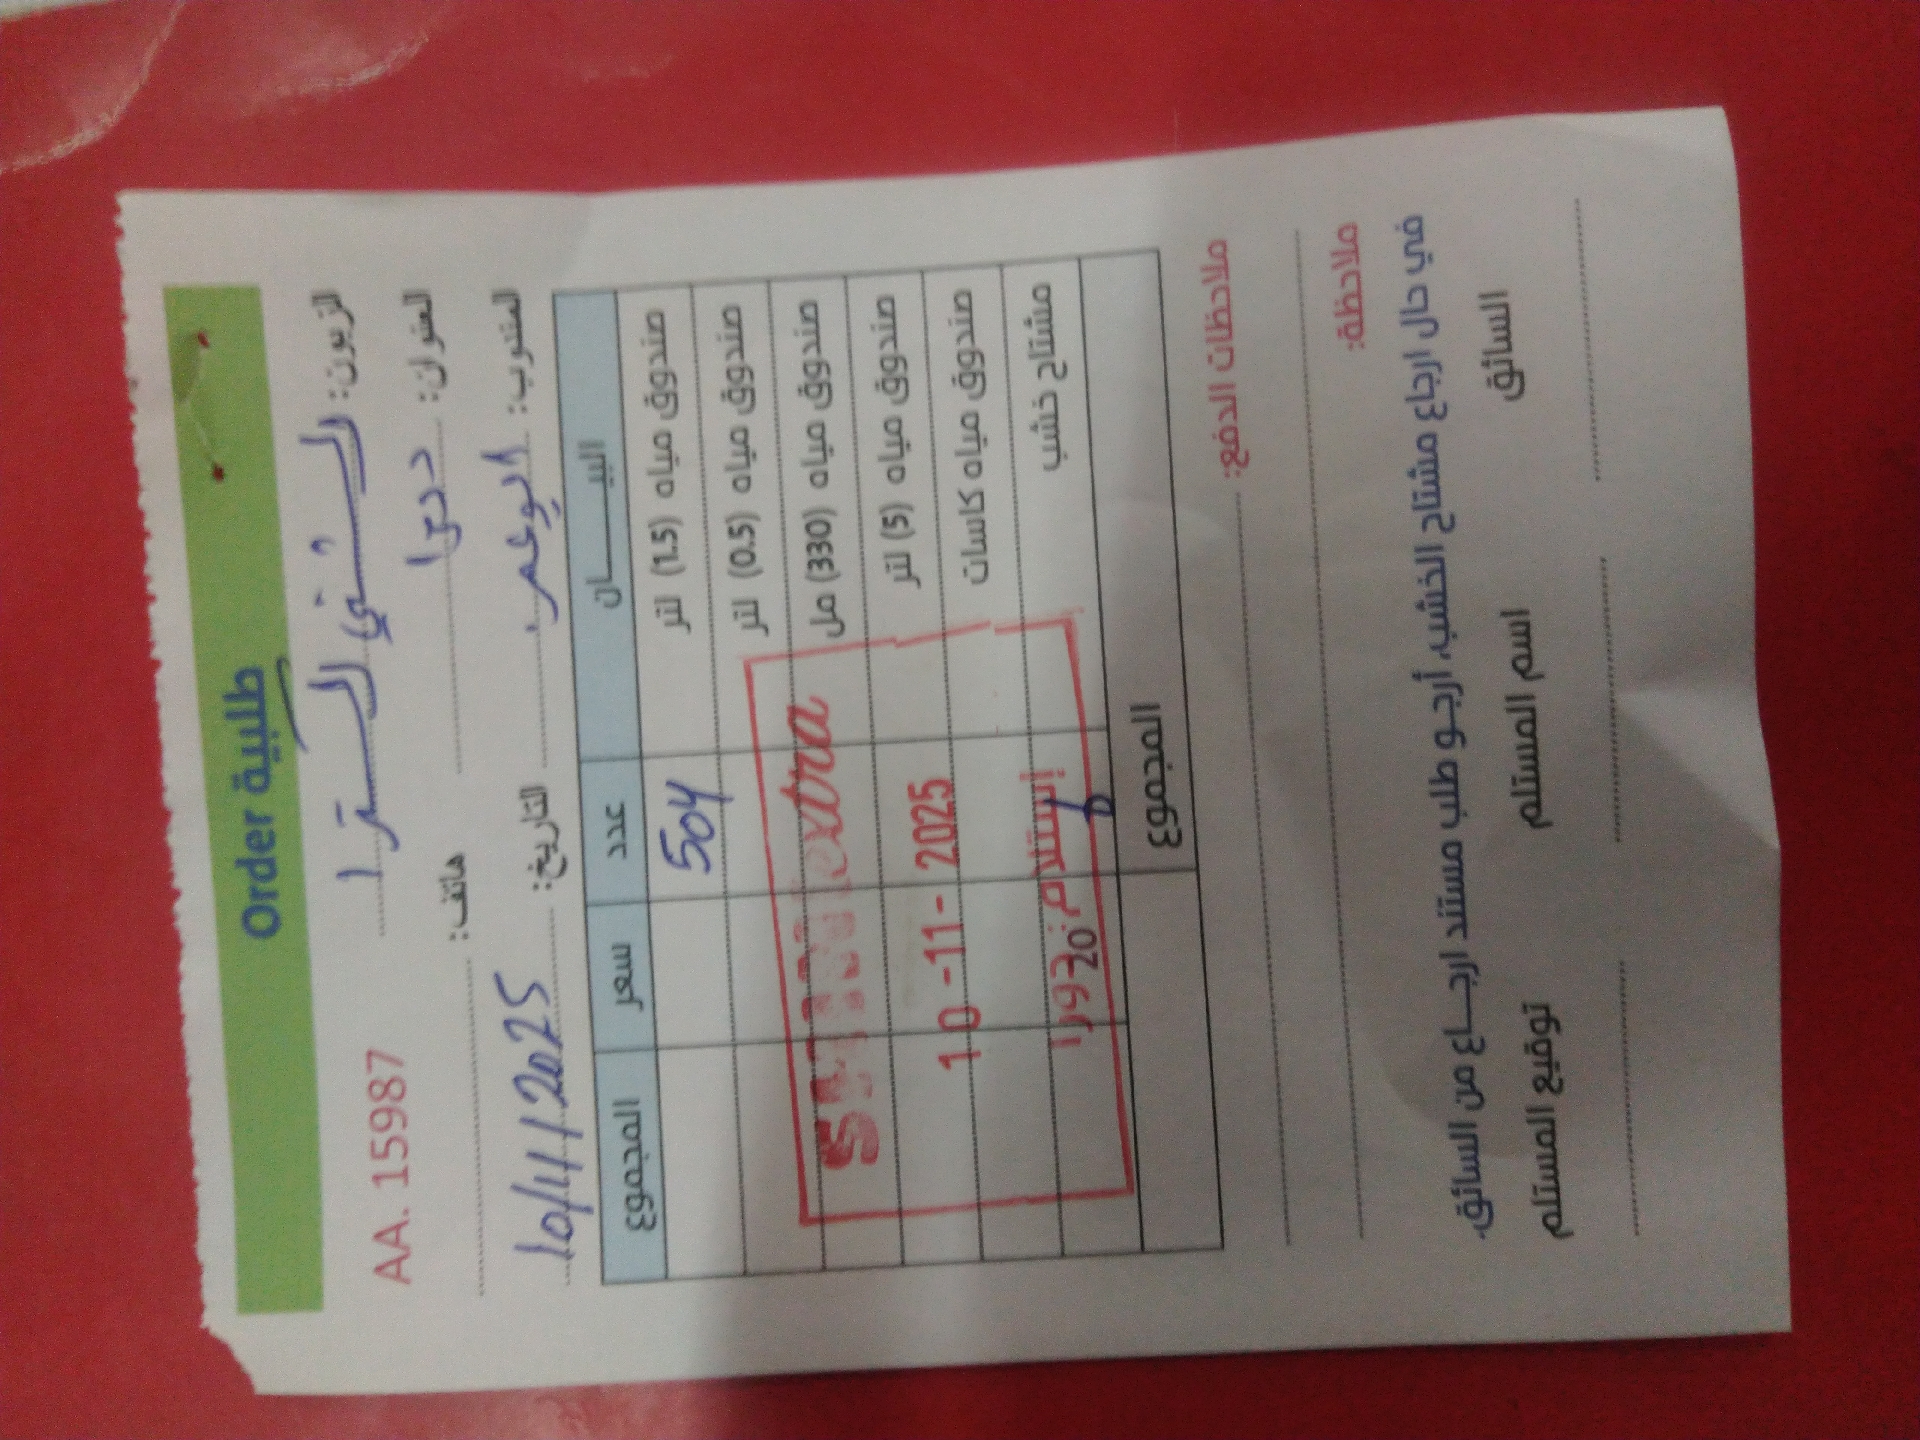 Order طلبية
AA. 15987
الزبون: الشني إكسترا
العنوان: دورا هاتف:
المندوب: ابو عمر التاريخ: 10/11/2025
البيـــــان عدد سعر المجموع
صندوق مياه (1.5) لتر 504
صندوق مياه (0.5) لتر
صندوق مياه (330) مل
صندوق مياه (5) لتر
صندوق مياه كاسات
مشتاح خشب
extra
10 -11- 2025
إستلام: دورا
20
المجموع
ملاحظات الدفع:
ملاحظة:
في حال ارجاع مشتاح الخشب، أرجـو طلب مستند ارجـــاع من السائق.
السائق اسم المستلم توقيع المستلم